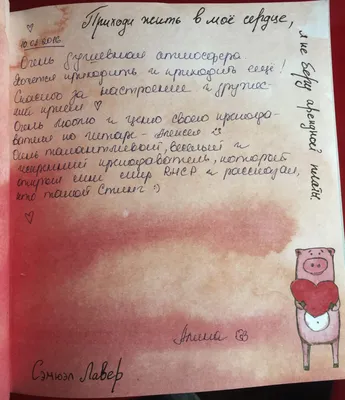 Приходи жить в моё сердце,
я не беру арендной платы.
Очень душевная атмосфера.
Хочется приходить и приходить ещё!
Спасибо за настроение и дружес-
кий приём ♡
Очень люблю и ценю своего препода-
вателя по гитаре - Алексея
Очень талантливый, весёлый и
преподаватель, который
открыл мне мир RHCP и рассказал,
кто такой Стинг :)
♡
Алина
Сэмюэл Лавер